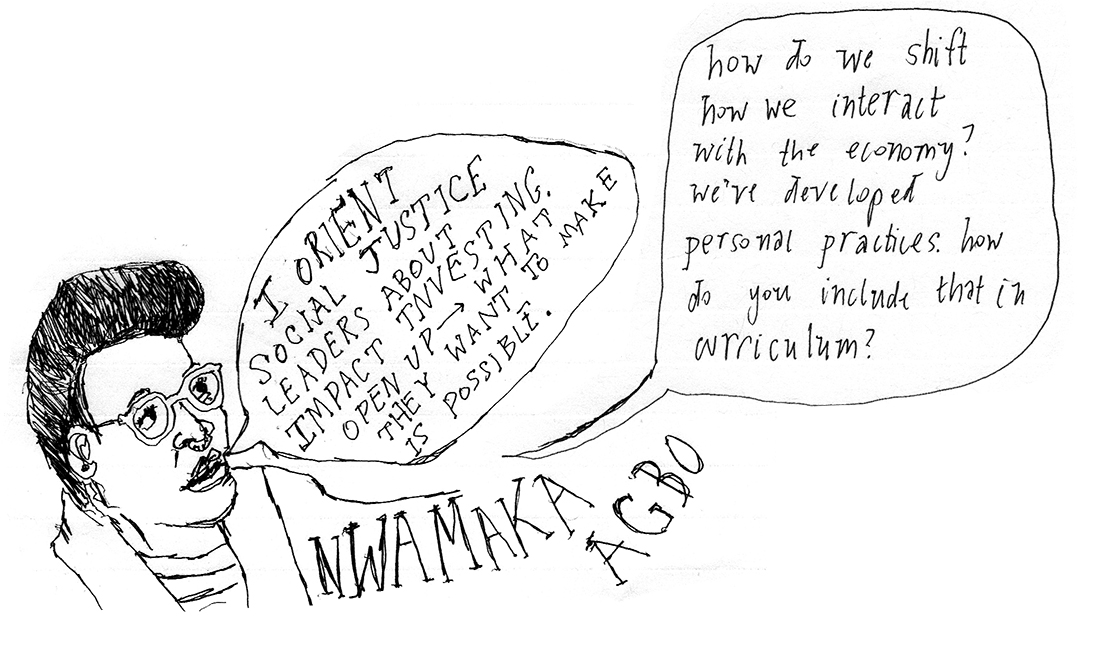 I ORIENT
SOCIAL JUSTICE
LEADERS ABOUT
IMPACT INVESTING.
OPEN UP → WHAT
THEY WANT TO MAKE
IS POSSIBLE.
how do we shift
how we interact
with the economy?
we've developed
personal practices. how
do you include that in
curriculum?
NWAMAKA
AGBO